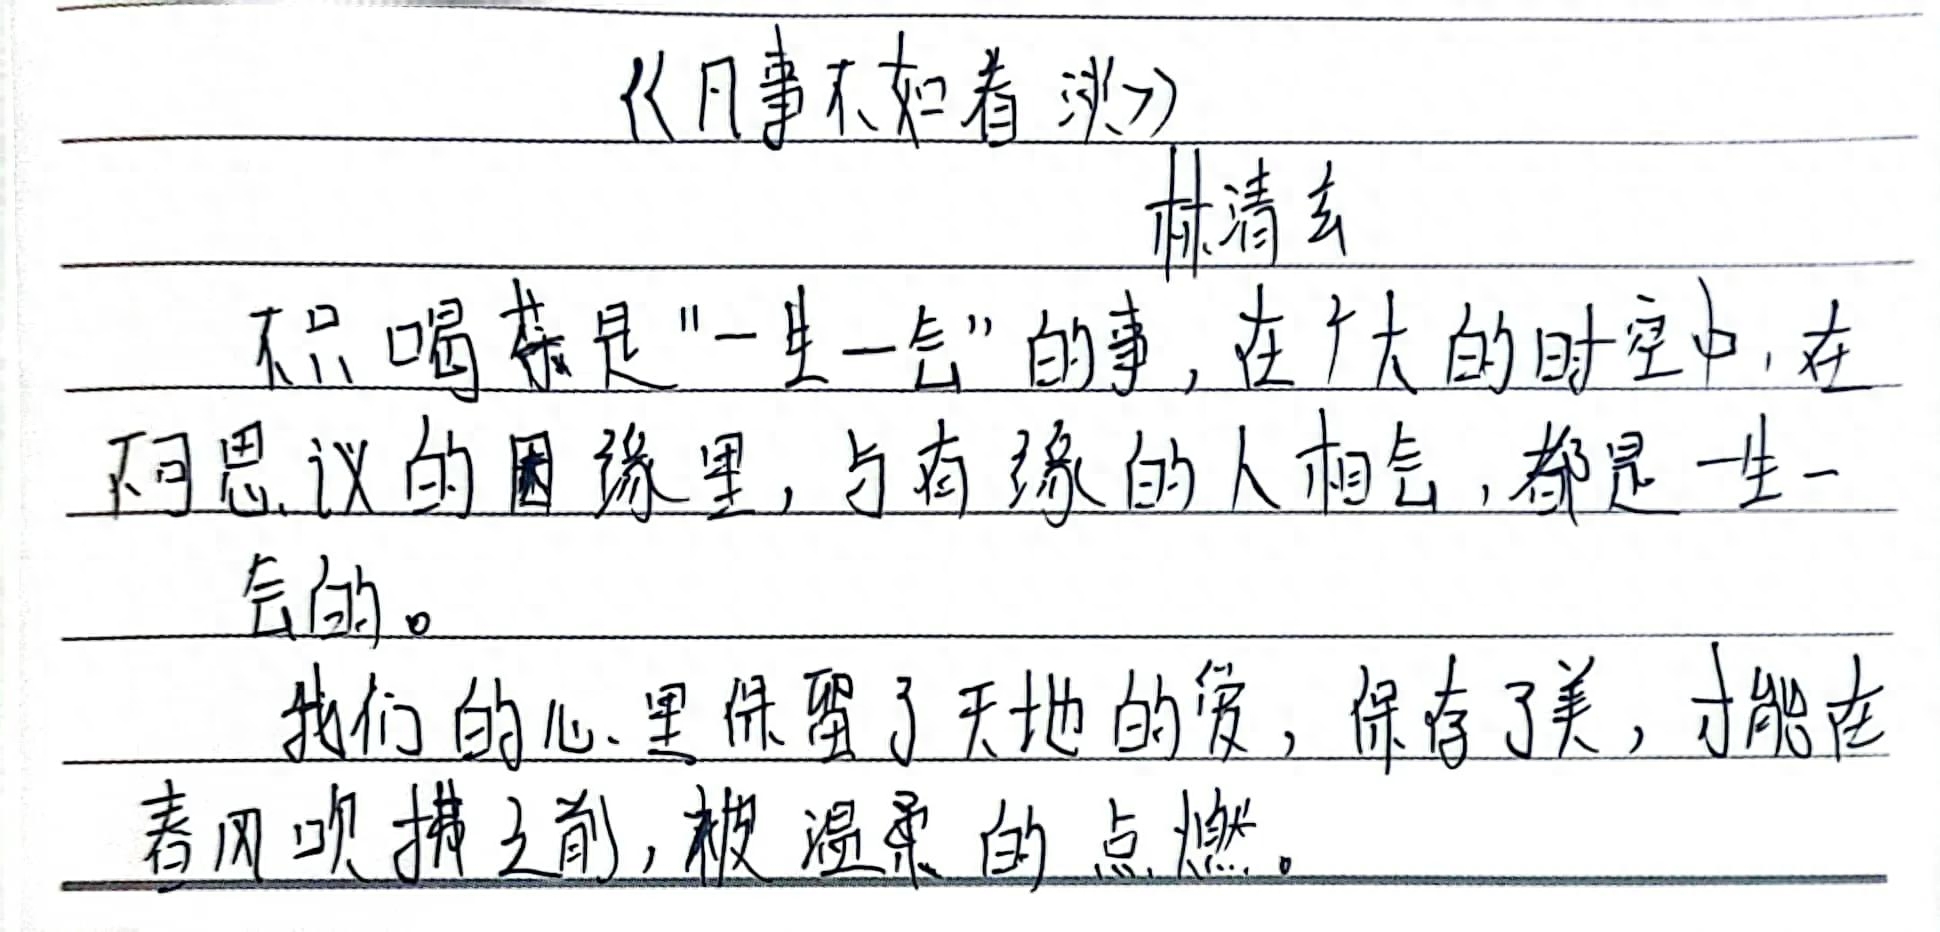 《凡事不如看淡》
林清玄
不只喝茶是“一生一会”的事，在广大的时空中，在
不可思议的因缘里，与有缘的人相会，都是一生一
会的。
我们的心里保留了天地的爱，保存了美，才能在
春风吹拂之前，被温柔的点燃。